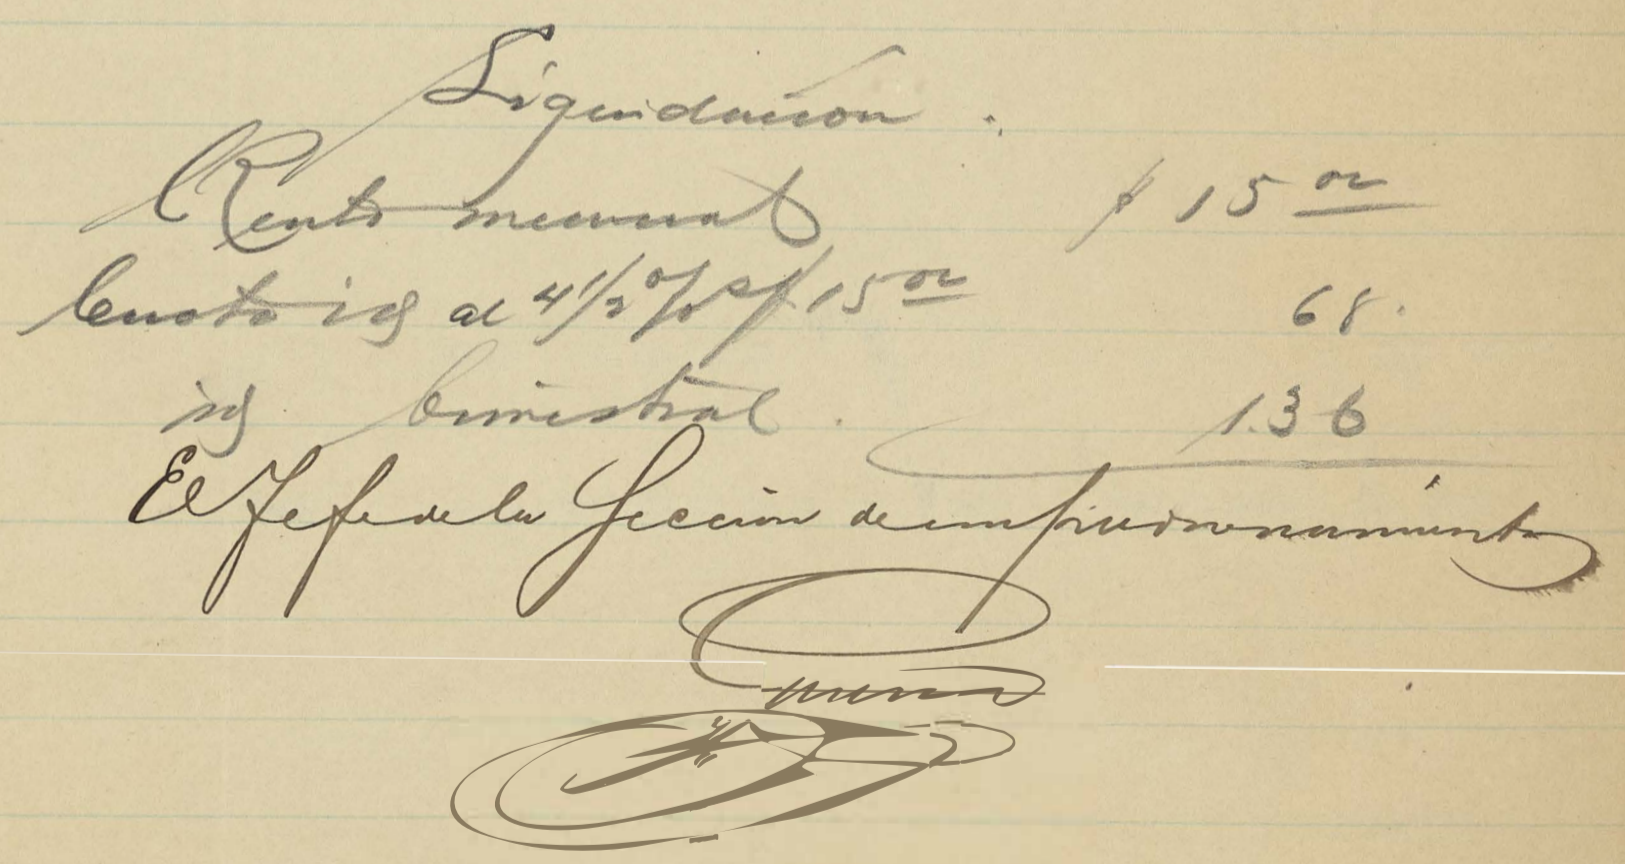 Liquidación.
Renta mensual $ 15 00
Cuota id al 4 1/2 % s/ 15 00 68.
id bimestral. 1.36
El Jefe de la Sección de empadronamiento